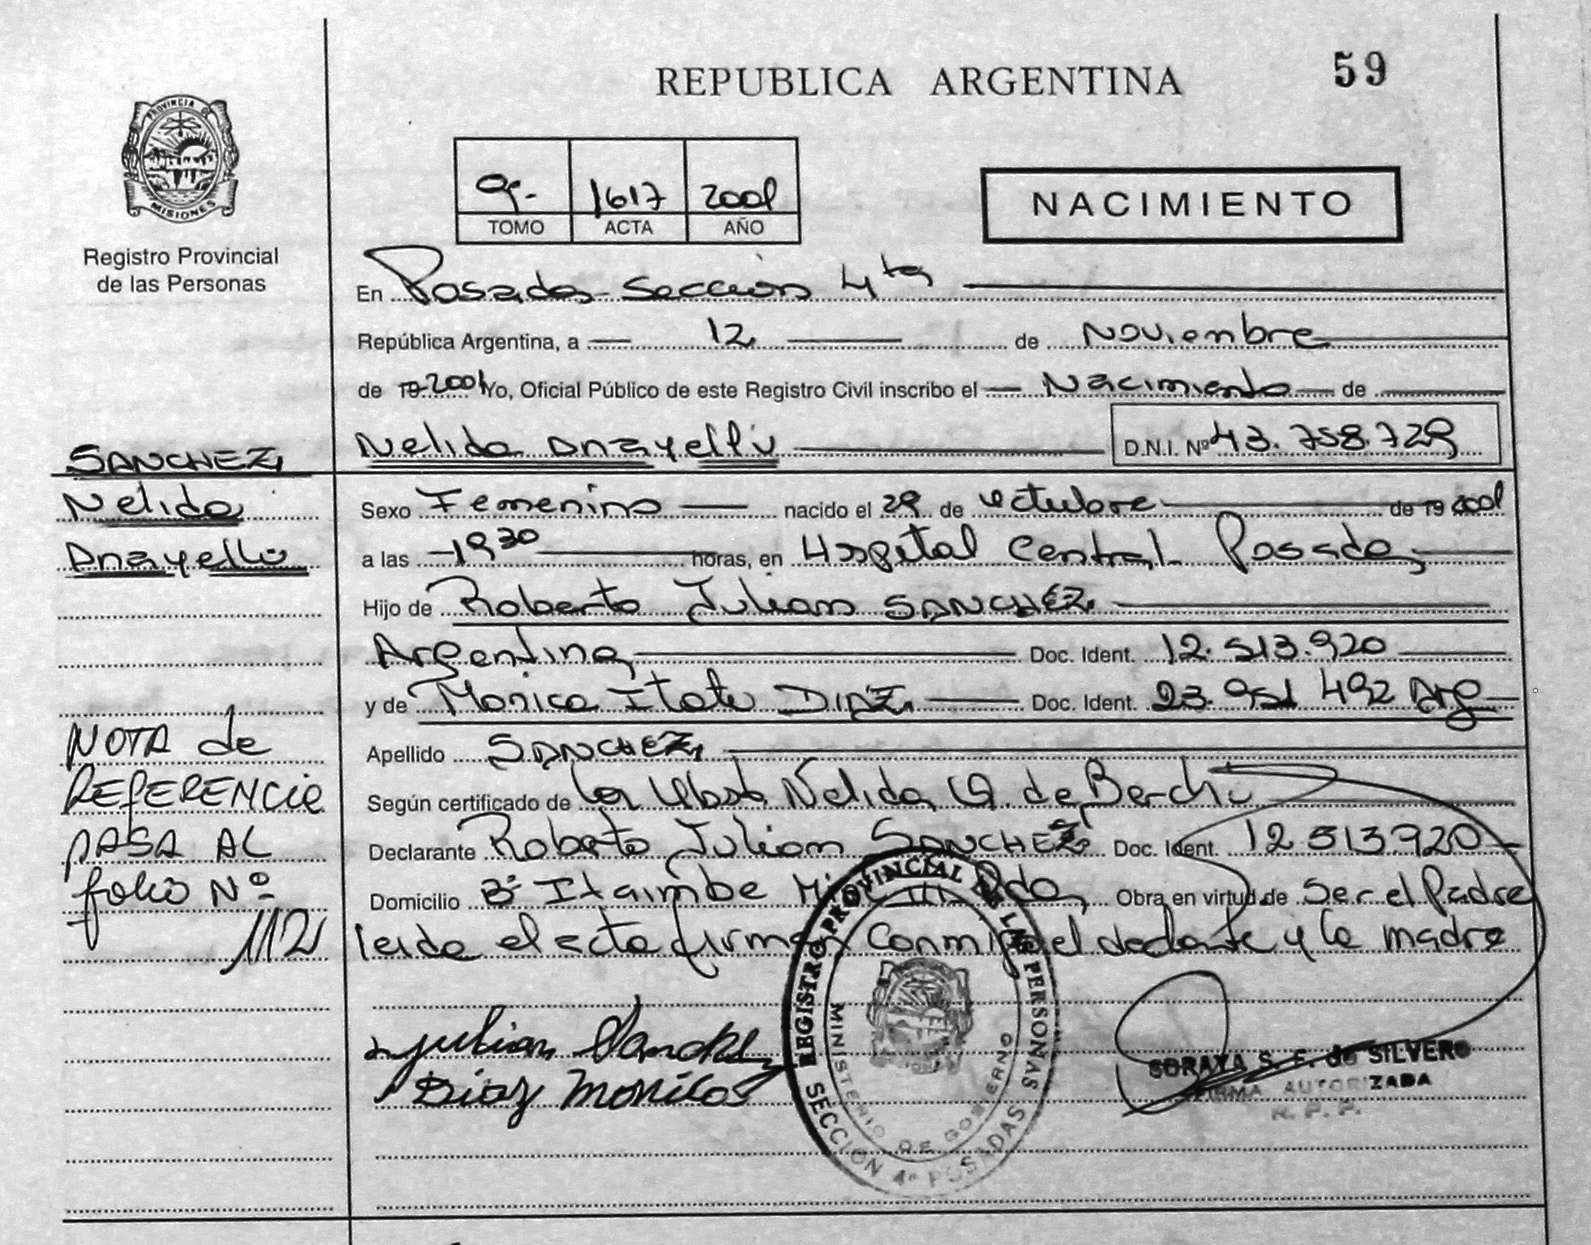 59
REPUBLICA ARGENTINA
PROVINCIA D
MISIONES
Registro Provincial
de las Personas
9.- 1617 2001
TOMO ACTA AÑO
NACIMIENTO
En Posadas Sección 4ta
República Argentina, a 12 de Noviembre
de 19 2001 Yo, Oficial Público de este Registro Civil inscribo el Nacimiento de
Nelida Anayellü D.N.I. Nº 43.758.729
Sexo Femenino nacido el 29 de octubre de 19 2001
a las 19 30 horas, en Hospital Central Posadas
Hijo de Roberto Julian SANCHEZ
Argentina Doc. Ident. 12.513.920
y de Monica Itati DIAZ Doc. Ident. 23.951 492 Arg
Apellido SANCHEZ
Según certificado de la Nelida de
Declarante Roberto Julian SANCHEZ Doc. Ident. 12.513.920
Domicilio Bº Itaimbe Mini Pda, Obra en virtud de Ser el Padre
leido el acta firman conmigo el declante y la madre
SANCHEZ
Nelida
Anayellü
NOTA de
REFERENCIA
PASA AL
folio Nº
112
Julian Sanchez
Diaz Monica
REGISTRO PROVINCIAL DE LAS PERSONAS
MINISTERIO DE GOBIERNO
SECCION 4ª POSADAS
SORAYA S. F. de SILVERO
FIRMA AUTORIZADA
R. P. P.